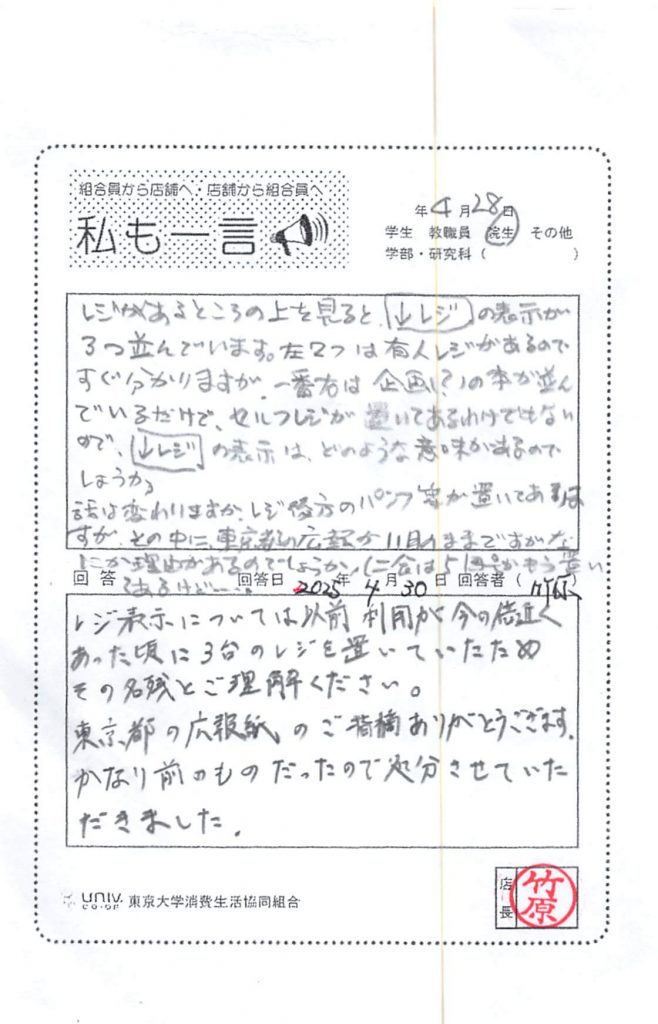 組合員から店舗へ・店舗から組合員へ
私も一言
年4月28日
学生 教職員 院生 その他
学部・研究科( )
レジがあるところの上を見ると、↓レジの表示が
3つ並んでいます。左2つは有人レジがあるので
すぐ分かりますが、一番右は企画(?)の本が並ん
でいるだけで、セルフレジが置いてあるわけでもない
ので、↓レジの表示は、どのような意味があるので
しょうか。
話は変わりますが、レジ後方のパンフ等が置いてあり
ますが、その中に、東京都の広報が11月のままですがな
にか理由があるのでしょうか(二食は5月号がもう置い
てあるけど…。
回答 回答日 2025年4月30日 回答者(竹原
レジ表示については以前利用が今の倍近く
あった頃に3台のレジを置いていたため
その名残とご理解ください。
東京都の広報紙のご指摘ありがとうございます。
かなり前のものだったので処分させていた
だきました。
univ. CO-OP 東京大学消費生活協同組合
店長 竹原